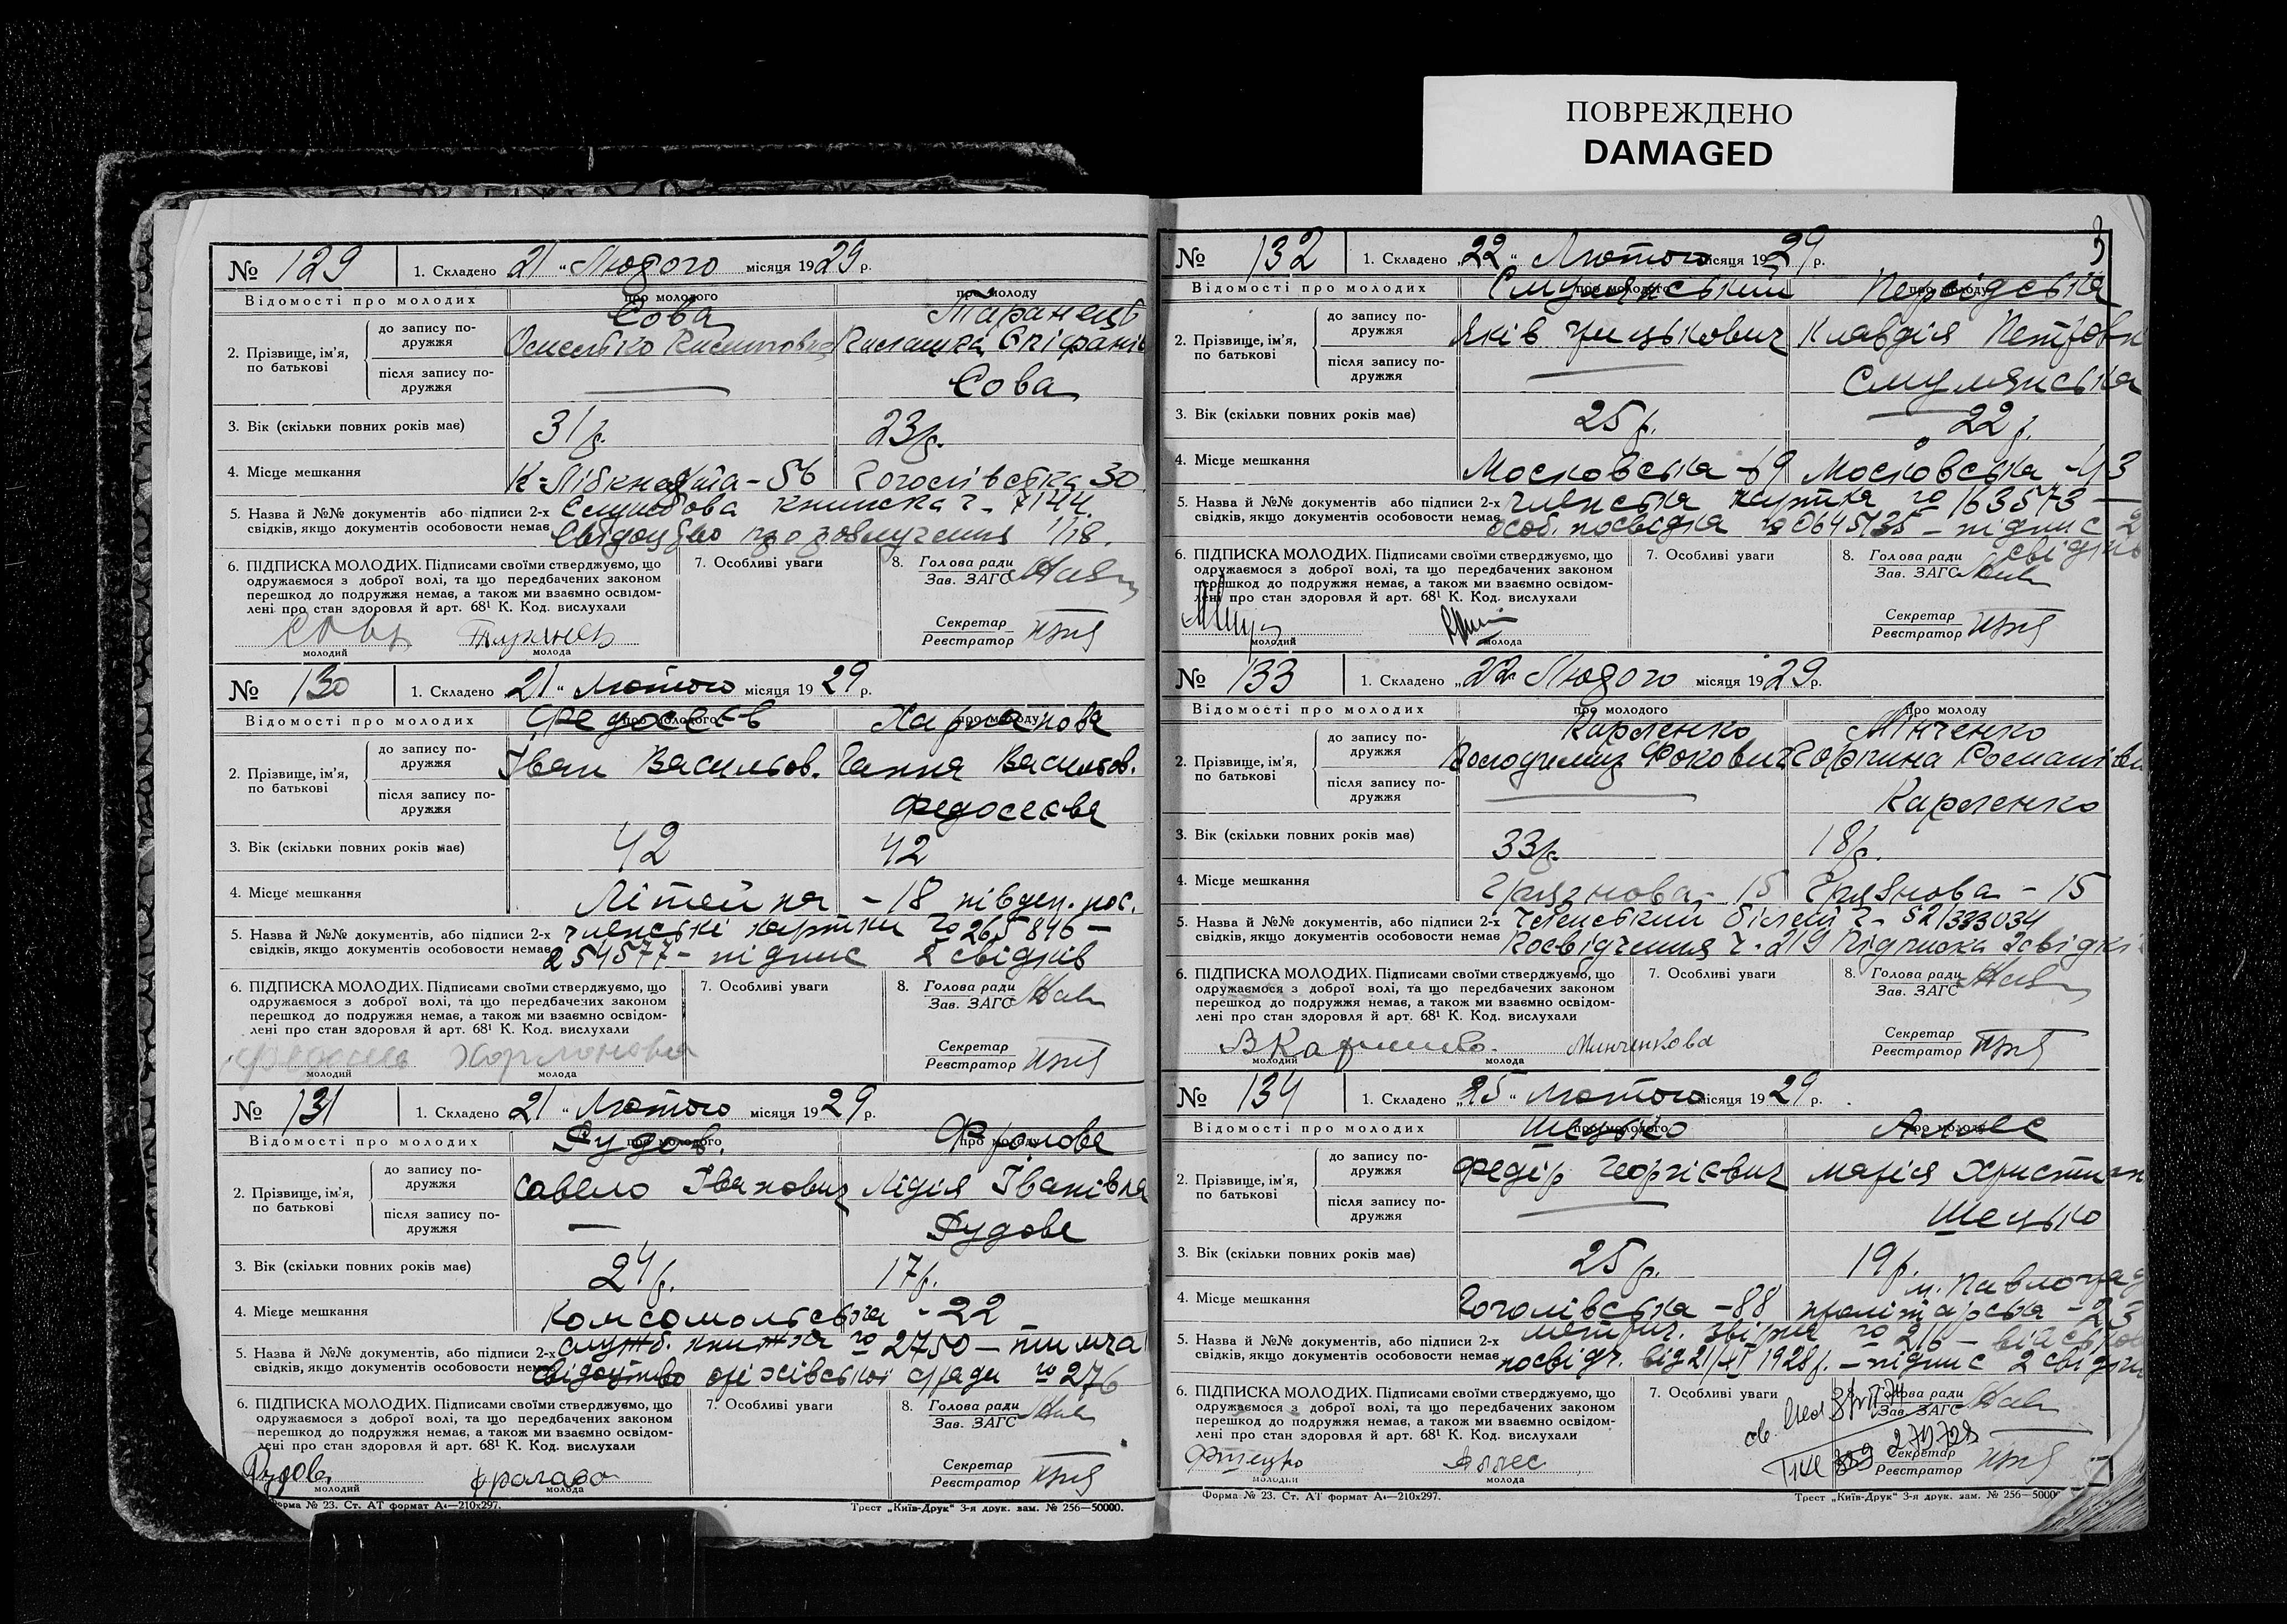 ПОВРЕЖДЕНО
DAMAGED
№ 129 1. Складено 21 "Людого місяця 1929 р.
Відомості про молодих про молодого про молоду
Сова Таранець
2. Прізвище, ім'я, по батькові
до запису подружжя
після запису подружжя
Сова
3. Вік (скільки повних років має) 31 р. 23 р.
4. Місце мешкання К-Лібкнехта-56 Гоголівська 30
5. Назва й №№ документів або підписи 2-х Службова книжка ч. 7144.
свідків, якщо документів особовости немає 1/18.
6. ПІДПИСКА МОЛОДИХ. Підписами своїми стверджуємо, що
одружаємося з доброї волі, та що передбачених законом
перешкод до подружжя немає, а також ми взаємно освідом-
лені про стан здоровля й арт. 68¹ К. Код. вислухали
7. Особливі уваги
8. Голова ради
Зав. ЗАГС
Секретар
Реєстратор
Сова Таранец
молодий молода
№ 130 1. Складено 21 " Лютого місяця 1929 р.
Відомості про молодих про молодого про молоду
Федосеєв Харланова
2. Прізвище, ім'я, по батькові
до запису подружжя Іван Васильов. Ганна Васильов.
після запису подружжя Федосеєва
3. Вік (скільки повних років має) 42 42
4. Місце мешкання Літейна - 18 півден. пос.
5. Назва й №№ документів, або підписи 2-х членські картки № 265846 -
свідків, якщо документів особовости немає 254577 - підпис 2 свідків
6. ПІДПИСКА МОЛОДИХ. Підписами своїми стверджуємо, що
одружаємося з доброї волі, та що передбачених законом
перешкод до подружжя немає, а також ми взаємно освідом-
лені про стан здоровля й арт. 68¹ К. Код. вислухали
7. Особливі уваги
8. Голова ради
Зав. ЗАГС
Секретар
Реєстратор
молодий молода
№ 131 1. Складено 21 " Лютого місяця 1929 р.
Відомості про молодих про молодого про молоду
Дудов. Фролова
2. Прізвище, ім'я, по батькові
до запису подружжя Савело Іванович Лідія Іванівна
після запису подружжя — Дудова
3. Вік (скільки повних років має) 24 р. 17 р.
4. Місце мешкання Комсомольська - 22
5. Назва й №№ документів, або підписи 2-х служб. книжка № 2750 -
свідків, якщо документів особовости немає свідоцтво оріхівської сради № 276
6. ПІДПИСКА МОЛОДИХ. Підписами своїми стверджуємо, що
одружаємося з доброї волі, та що передбачених законом
перешкод до подружжя немає, а також ми взаємно освідом-
лені про стан здоровля й арт. 68¹ К. Код. вислухали
7. Особливі уваги
8. Голова ради
Зав. ЗАГС
Секретар
Реєстратор
молодий молода
Форма № 23. Ст. АТ формат А₄—210х297. Трест „Київ-Друк" 3-я друк. зам. № 256—50000.
3
№ 132 1. Складено „22" Лютого місяця 1929 р.
Відомості про молодих про молодого про молоду
Смулянський
2. Прізвище, ім'я, по батькові
до запису подружжя Яків Клавдія Петровн
після запису подружжя Смулянська
3. Вік (скільки повних років має) 25 р. 22 р.
4. Місце мешкання Московська - 69 Московська - 43
5. Назва й №№ документів або підписи 2-х членська картка № 163573 —
свідків, якщо документів особовости немає особ. посвідка № 0645135 - підпис 2
свідків
6. ПІДПИСКА МОЛОДИХ. Підписами своїми стверджуємо, що
одружаємося з доброї волі, та що передбачених законом
перешкод до подружжя немає, а також ми взаємно освідом-
лені про стан здоровля й арт. 68¹ К. Код. вислухали
7. Особливі уваги
8. Голова ради
Зав. ЗАГС
Секретар
Реєстратор
молодий молода
№ 133 1. Складено „22 Людого місяця 1929 р.
Відомості про молодих про молодого про молоду
Карленко Мінченко
2. Прізвище, ім'я, по батькові
до запису подружжя Володимир Фокович Горпина Романівн
після запису подружжя Карленко
3. Вік (скільки повних років має) 33 р. 18 р.
4. Місце мешкання Грязнова - 15 Грязнова - 15
5. Назва й №№ документів, або підписи 2-х Членський білет ч- 52/333034
свідків, якщо документів особовости немає Посвідчення ч. 219 Підписка 2 свідків
6. ПІДПИСКА МОЛОДИХ. Підписами своїми стверджуємо, що
одружаємося з доброї волі, та що передбачених законом
перешкод до подружжя немає, а також ми взаємно освідом-
лені про стан здоровля й арт. 68¹ К. Код. вислухали
7. Особливі уваги
8. Голова ради
Зав. ЗАГС
Секретар
Реєстратор
Минченкова
молодий молода
№ 134 1. Складено „25" Лютого місяця 1929 р.
Відомості про молодих про молодого про молоду
Шецько Аллес
2. Прізвище, ім'я, по батькові
до запису подружжя Федір Георгієвич Марія Христиан
після запису подружжя Шецько
3. Вік (скільки повних років має) 25 р. 19 р.
м. Павлоград
4. Місце мешкання Гоголівська - 88 пролітарська - 23
5. Назва й №№ документів, або підписи 2-х метрич. № 216 -
свідків, якщо документів особовости немає посвідч. від 21/XI 1928 р. - підпис 2 свідків
6. ПІДПИСКА МОЛОДИХ. Підписами своїми стверджуємо, що
одружаємося з доброї волі, та що передбачених законом
перешкод до подружжя немає, а також ми взаємно освідом-
лені про стан здоровля й арт. 68¹ К. Код. вислухали
7. Особливі уваги
8. Голова ради
Зав. ЗАГС
Секретар
Реєстратор
Аллес
молодий молода
Форма № 23. Ст. АТ формат А₄—210х297. Трест „Київ-Друк" 3-я друк. зам. № 256—5000